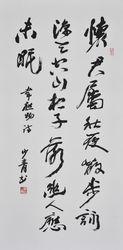 懷君屬秋夜散步詠
涼天空山松子落幽人應
未眠
韋應物詩
少青書